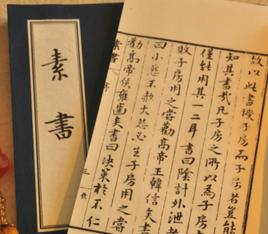 素書
故以此書授子房而子房者豈能
知其書哉凡子房之所以為子房者
僅能用其一二耳書曰陰計外泄者
敗子房用之嘗勸高帝王韓信矣書
曰小怨不赦大怨必生子房用之嘗
勸高帝侯雍齒矣書曰決策於不仁
素書 序 三